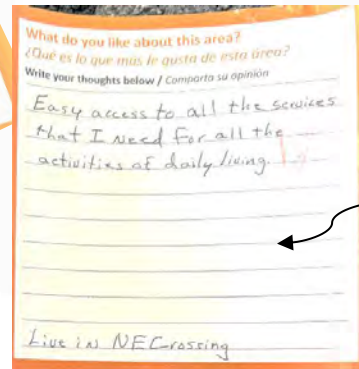 What do you like about this area?
¿Qué es lo que más le gusta de esta área?
Write your thoughts below / Comparta su opinión
Easy access to all the services
that I need for all the
activities of daily living.
Live in NE Crossing